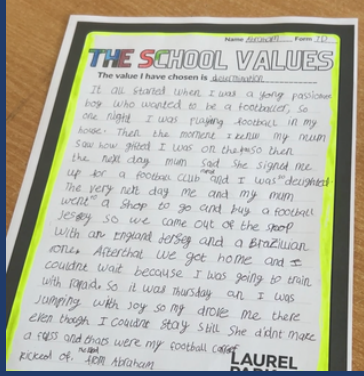 Name Abraham Form
THE SCHOOL VALUES
The value I have chosen is determination
It all started when I was a young passionate
boy who wanted to be a footballer, so
one night I was playing football in my
house. Then the moment I knew my mum
saw how gifted I was on the so then
the next day mum said she signed me
up for a football club and I was so delighted
The very next day me and my mum
went to a shop to go and buy a football
Jersey so we came out of the shop
with an England Jersey and a Brazilian
one. Afterthat we got home and I
couldnt wait because I was going to train
with So it was thursday an I was
Jumping with Joy so my drove me there
even though I couldnt stay still She didnt make
a fuss and thats were my football career
kicked of. from Abraham
LAUREL